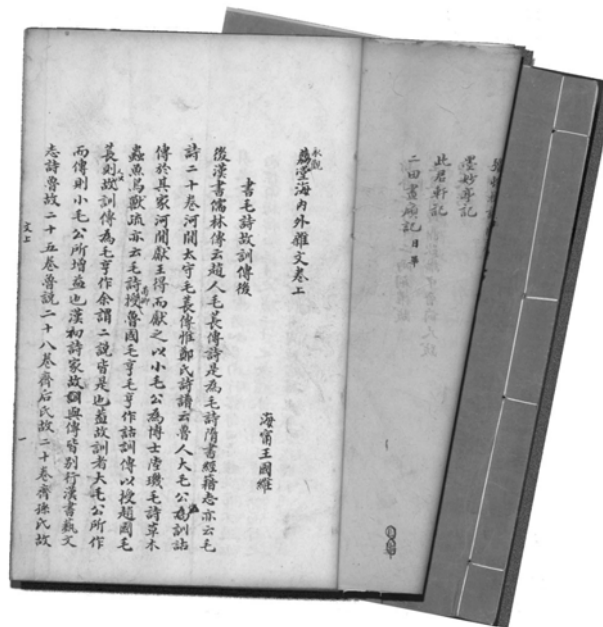 墨妙亭記
此君軒記
二田畫廎記 日華
永觀
堂海內外雜文卷上
書毛詩故訓傳後
海甯王國維
後漢書儒林傳云趙人毛萇傳詩是為毛詩隋書經籍志亦云毛
詩二十卷河間太守毛萇傳惟鄭氏詩譜云魯人大毛公為訓詁
傳於其家河間獻王得而獻之以小毛公為博士陸璣毛詩草木
蟲魚鳥獸疏亦云毛詩荀卿授魯國毛亨毛亨作詁訓傳以授趙國毛
萇則故訓傳為毛亨作余謂二說皆是也蓋故訓者大毛公所作
而傳則小毛公所增益也漢初詩家故訓與傳皆別行漢書藝文
志詩魯故二十五卷魯說二十八卷齊后氏故二十卷齊孫氏故
文上
一